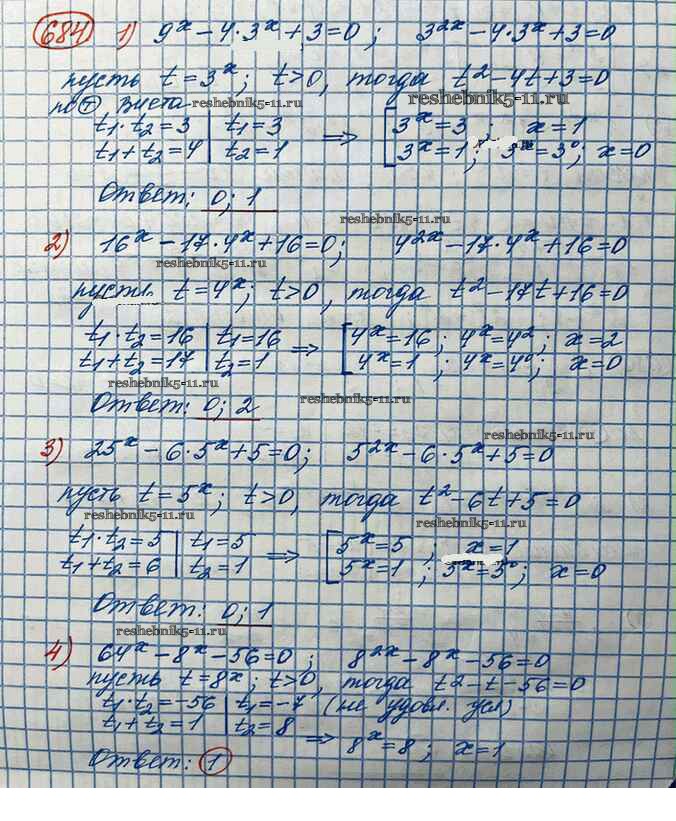 684 1) 9ˣ – 4·3ˣ + 3 = 0; 3²ˣ – 4·3ˣ + 3 = 0
пусть t = 3ˣ; t > 0, тогда t² – 4t + 3 = 0
по Т Виета reshebnik5-11.ru reshebnik5-11.ru
t₁·t₂ = 3 | t₁ = 3 ⇒ [ 3ˣ = 3 x = 1
t₁ + t₂ = 4 | t₂ = 1 3ˣ = 1; 3ˣ = 3⁰; x = 0
Ответ: 0; 1
reshebnik5-11.ru
2) 16ˣ – 17·4ˣ + 16 = 0; 4²ˣ – 17·4ˣ + 16 = 0
reshebnik5-11.ru
пусть t = 4ˣ; t > 0, тогда t² – 17t + 16 = 0
t₁·t₂ = 16 | t₁ = 16 ⇒ [ 4ˣ = 16; 4ˣ = 4²; x = 2
t₁ + t₂ = 17 | t₂ = 1 4ˣ = 1; 4ˣ = 4⁰; x = 0
reshebnik5-11.ru
Ответ: 0; 2 reshebnik5-11.ru
reshebnik5-11.ru
3) 25ˣ – 6·5ˣ + 5 = 0; 5²ˣ – 6·5ˣ + 5 = 0
пусть t = 5ˣ; t > 0, тогда t² – 6t + 5 = 0
reshebnik5-11.ru reshebnik5-11.ru
t₁·t₂ = 5 | t₁ = 5 ⇒ [ 5ˣ = 5; x = 1
t₁ + t₂ = 6 | t₂ = 1 5ˣ = 1; 5ˣ = 5⁰; x = 0
Ответ: 0; 1
reshebnik5-11.ru
4) 64ˣ – 8ˣ – 56 = 0; 8²ˣ – 8ˣ – 56 = 0
пусть t = 8ˣ; t > 0, тогда t² – t – 56 = 0
t₁·t₂ = –56 | t₁ = –7 (не удовл. усл)
t₁ + t₂ = 1 | t₂ = 8 ⇒ 8ˣ = 8; x = 1
Ответ: 1